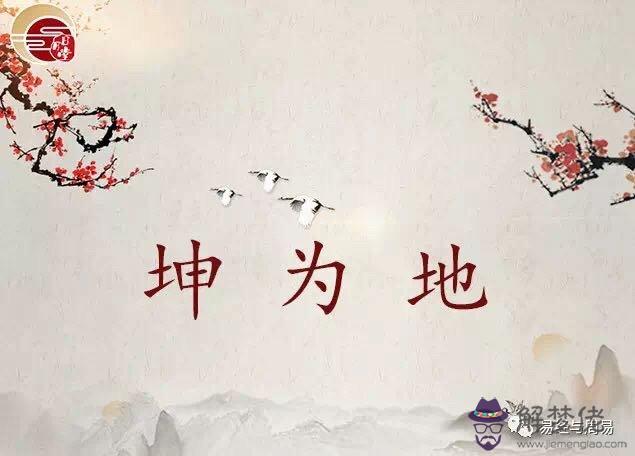 坤为地
解梦佬
易经与周易
www.jiemenglao.com